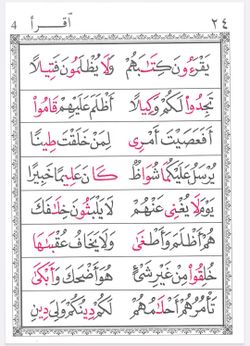 ٢٤ اقرأ 4
يَقْرَءُونَ كِتَـٰبَهُمْ وَلَا يُظْلَمُونَ فَتِيلًا
تَجِدُوا۟ لَكُمْ وَكِيلًا أَظْلَمَ عَلَيْهِمْ قَامُوا۟
أَفَعَصَيْتَ أَمْرِى لِمَنْ خَلَقْتَ طِينًا
يُرْسَلُ عَلَيْكُمَا شُوَاظٌ كَانَ عَلِيمًا خَبِيرًا
يَوْمَ لَا يُغْنِى عَنْهُمْ لَا يَلْبَثُونَ خِلَـٰفَكَ
هُمْ أَظْلَمَ وَأَطْغَىٰ وَلَا يَخَافُ عُقْبَـٰهَا
خُلِقُوا۟ مِنْ غَيْرِ شَىْءٍ هُوَ أَضْحَكَ وَأَبْكَىٰ
تَأْمُرُهُمْ أَحْلَـٰمُهُمْ لَكُمْ دِينُكُمْ وَلِىَ دِينِ